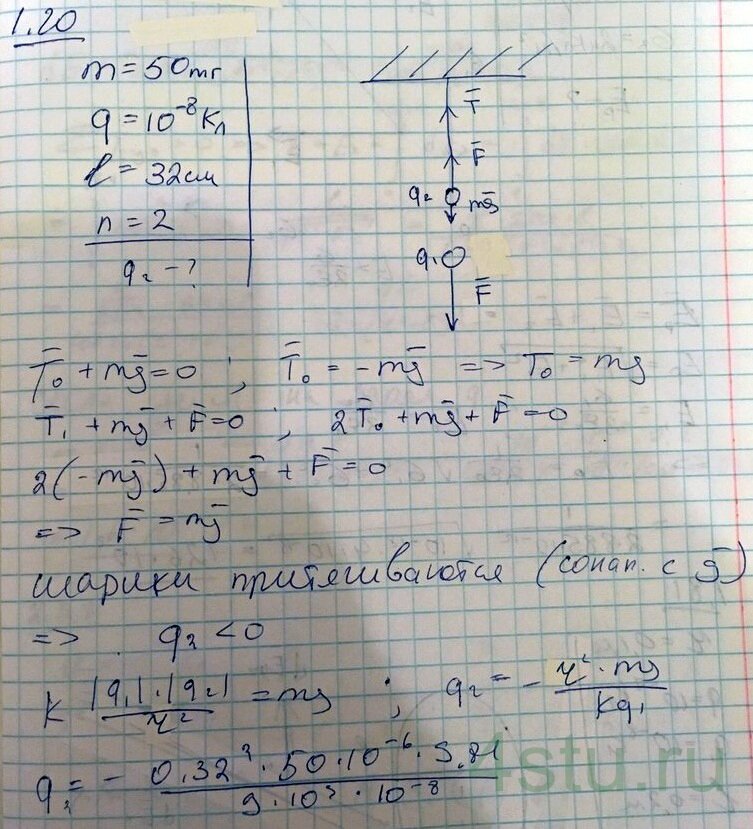 1.20
m = 50 мг
q = 10⁻⁸ Кл
l = 32 см
n = 2
q₂ - ?
T̄
F̄
q₂ mḡ
q₁
F̄
T̄₀ + mḡ = 0 ; T̄₀ = -mḡ => T₀ = mg
T̄₁ + mḡ + F̄ = 0 ; 2T̄₀ + mḡ + F̄ = 0
2(-mḡ) + mḡ + F̄ = 0
=> F̄ = mḡ
шарики притягиваются (сонап. с ḡ)
=> q₂ < 0
k |q₁|·|q₂| / r² = mg ; q₂ = - r²·mg / kq₁
q₂ = - 0.32²·50·10⁻⁶·9.81 / 9·10⁹·10⁻⁸
4stu.ru